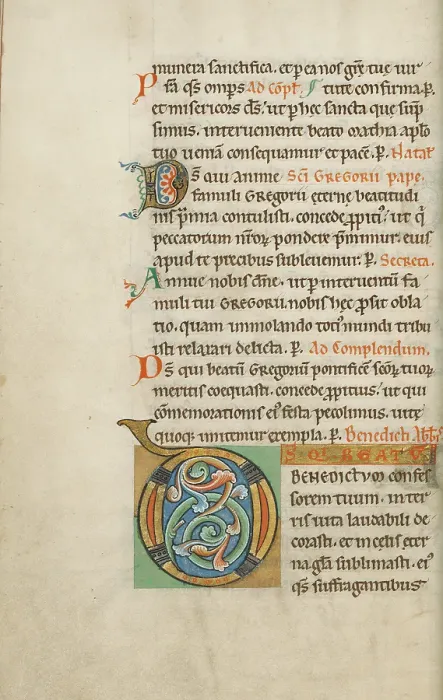 munera sanctifica. et p ea nos grę tuę vir
P sa qs omps Ad cōpl. tute confirma. P.
et misericors ds. ut p hęc sancta que sūp
simus. interueniente beato mathia aplo
tuo ueniā consequamur et pacē. P. Natał
Ds qui animę Sci Gregorii pape.
famuli Gregorii ęternę beatitudi
nis p̄mia contulisti. concede ppitī. ut q
peccatorum nrōr pondere p̄mimur. eius
apud te precibus subleuemur. P. Secreta.
Annue nobis dn̄e. ut p interuentū fa
muli tui Gregorii. nobis hęc p̄sit obla
tio. quam immolando toti᾽ mundi tribu
isti relaxari delicta. P. Ad Complendum.
Ds qui beatū Gregoriū pontificē scōr tuor
meritis coequasti. concede ppitius. ut qui
cōmemorationis ei᾽ festa pecolimus. uitę
quoq; imitemur exempla. P. Benedicti Abbis
O S. Q BEATV
BENEDICTVM confes
sorem tuum. inter
ris uita laudabili de
corasti. et in celis ęter
na glā sublimasti. ei᾽
qs suffragantibus